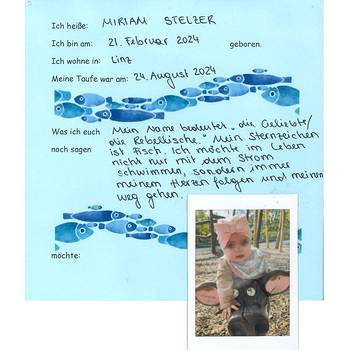 Ich heiße: MIRIAM STELZER
Ich bin am: 21. Februar 2024 geboren.
Ich wohne in: Linz
Meine Taufe war am: 24. August 2024
Was ich euch
noch sagen
Mein Name bedeutet „die Geliebte/
die Rebellische." Mein Sternzeichen
ist Fisch. Ich möchte im Leben
nicht nur mit dem Strom
schwimmen, sondern immer
meinem Herzen folgen und meinen
Weg gehen.
möchte: